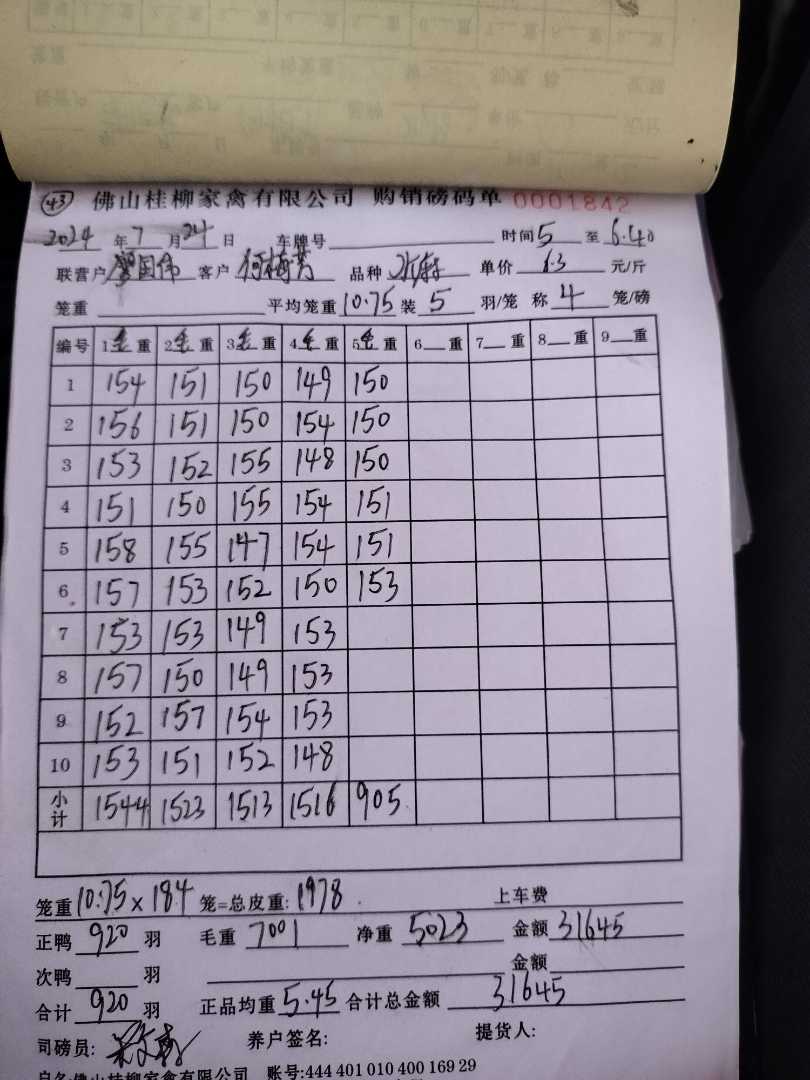 43 佛山桂柳家禽有限公司 购销磅码单 0001842
2024 年 7 月 24 日 车牌号 时间 5 至 6.40
联营户 廖国伟 客户 品种 单价 6.3 元/斤
笼重 平均笼重 10.75 装 5 羽/笼 称 4 笼/磅
编号 1 毛 重 2 毛 重 3 毛 重 4 毛 重 5 毛 重 6 重 7 重 8 重 9 重
1 154 151 150 149 150
2 156 151 150 154 150
3 153 152 155 148 150
4 151 150 155 154 151
5 158 155 147 154 151
6 157 153 152 150 153
7 153 153 149 153
8 157 150 149 153
9 152 157 154 153
10 153 151 152 148
小计 1544 1523 1513 1516 905
笼重 10.75 × 184 笼=总皮重: 1978 上车费
正鸭 920 羽 毛重 7001 净重 5023 金额 31645
次鸭 羽 金额
合计 920 羽 正品均重 5.45 合计总金额 31645
司磅员: 养户签名: 提货人:
户名:佛山桂柳家禽有限公司 账号:444 401 010 400 169 29